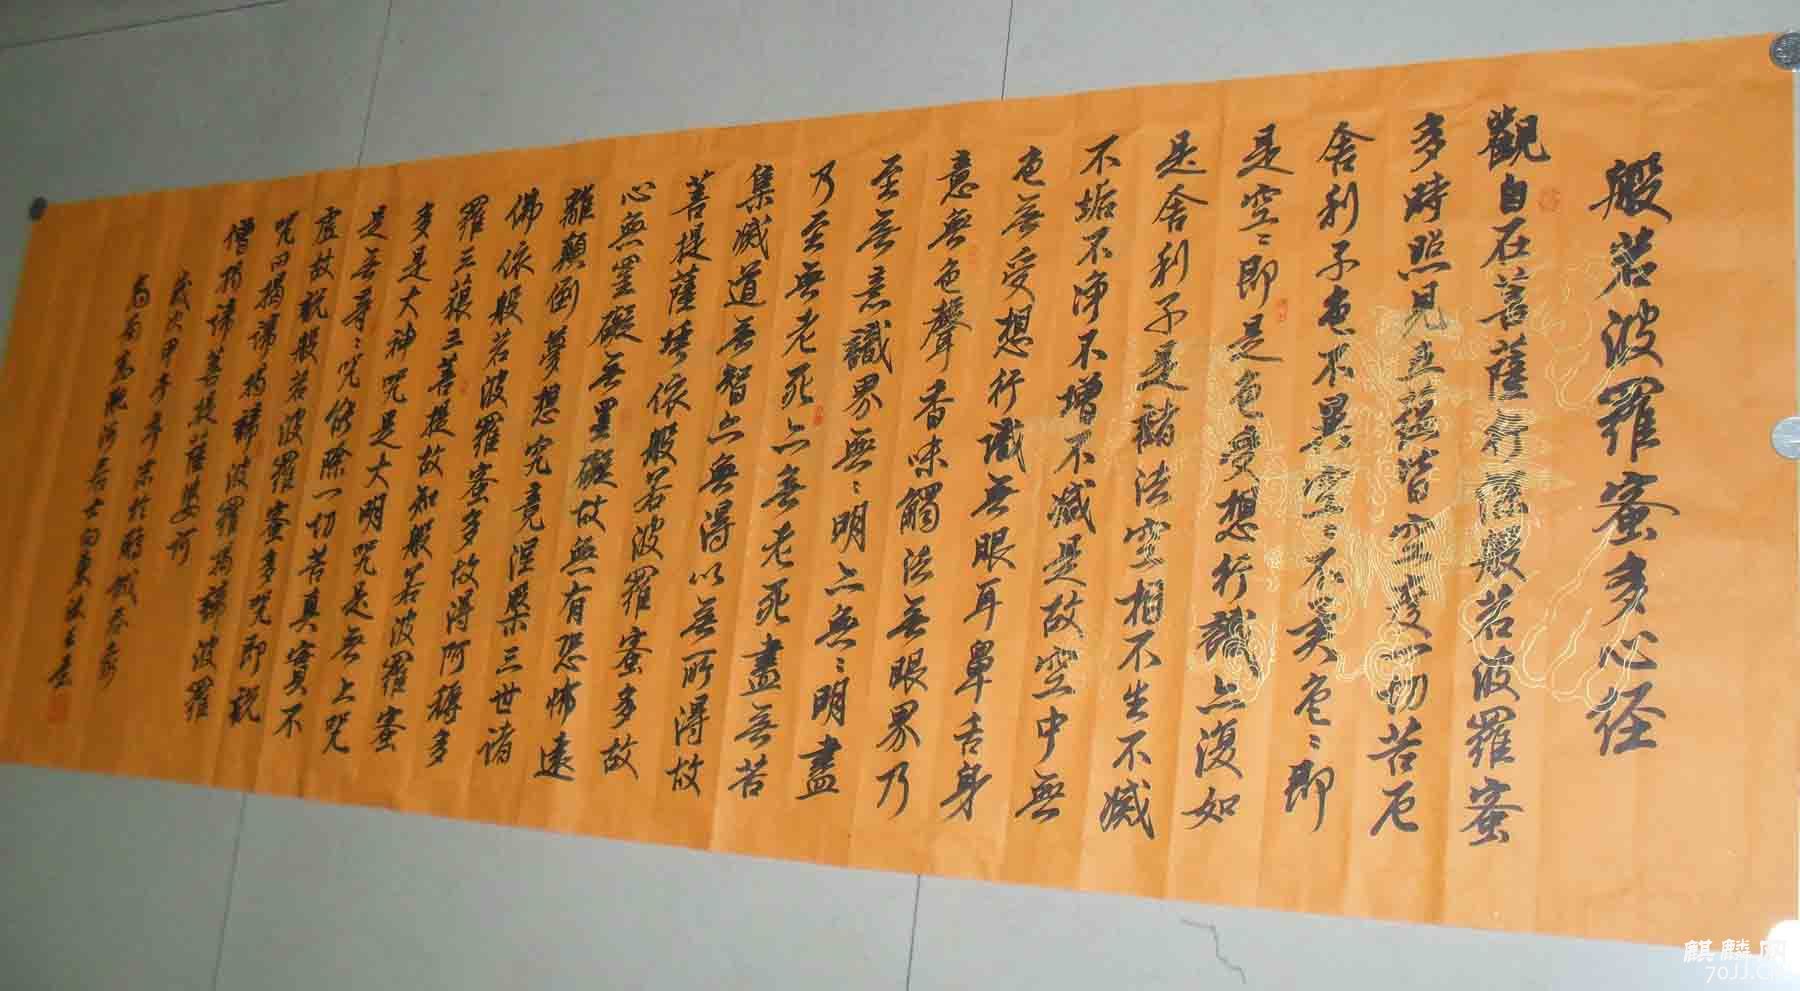 般若波羅蜜多心経
觀自在菩薩行深般若波羅蜜
多時照見五蕴皆空度一切苦厄
舍利子色不異空〻不異色〻即
是空〻即是色受想行識亦復如
是舍利子是諸法空相不生不滅
不垢不净不增不减是故空中無
色無受想行識無眼耳鼻舌身
意無色聲香味觸法無眼界乃
至無意識界無〻明亦無〻明盡
乃至無老死亦無老死盡無苦
集滅道無智亦無得以無所得故
菩提薩埵依般若波羅蜜多故
心無罣礙無罣礙故無有恐怖遠
離顛倒夢想究竟涅槃三世諸
佛依般若波羅蜜多故得阿耨多
羅三藐三菩提故知般若波羅蜜
多是大神咒是大明咒是無上咒
是無等〻咒能除一切苦真實不
虛故説般若波羅蜜多咒即説
咒曰揭諦揭諦波羅揭諦波羅
僧揭諦菩提薩婆訶
歲次甲午年
居士向東
麒麟网
70JJ.C